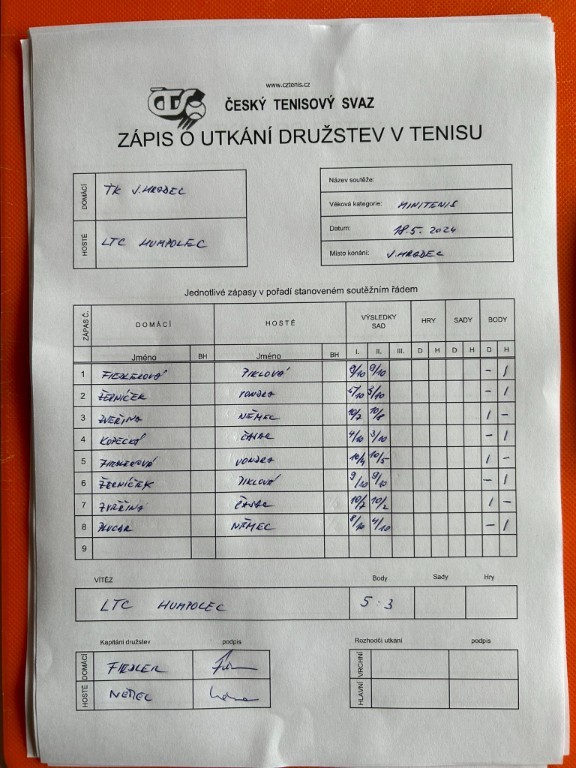 www.cztenis.cz
ČTS
ČESKÝ TENISOVÝ SVAZ
ZÁPIS O UTKÁNÍ DRUŽSTEV V TENISU
DOMÁCÍ TK J.HRADEC
HOSTÉ LTC HUMPOLEC
Název soutěže:
Věková kategorie: MINITENIS
Datum: 18.5.2024
Místo konání: J.HRADEC
Jednotlivé zápasy v pořadí stanoveném soutěžním řádem
ZÁPAS Č. DOMÁCÍ HOSTÉ VÝSLEDKY SAD HRY SADY BODY
Jméno BH Jméno BH I. II. III. D H D H D H
1 FIEDLEROVÁ PIKLOVÁ 9/10 9/10 - 1
2 ŽERNÍČEK VONDRA 5/10 - 1
3 ZVĚŘINA NĚMEC 10/2 10/8 1 -
4 KOPECKÁ ČÁSAR 4/10 3/10 - 1
5 FIEDLEROVÁ VONDRA 10/4 10/5 1 -
6 ŽERNÍČEK PIKLOVÁ 9/10 9/10 - 1
7 ZVĚŘINA ČÁSAR 10/2 10/2 1 -
8 NĚMEC 8/10 4/10 - 1
9
VÍTĚZ Body Sady Hry
LTC HUMPOLEC 5:3
Kapitáni družstev podpis Rozhodčí utkání podpis
DOMÁCÍ FIEDLER VRCHNÍ
HOSTÉ NĚMEC HLAVNÍ